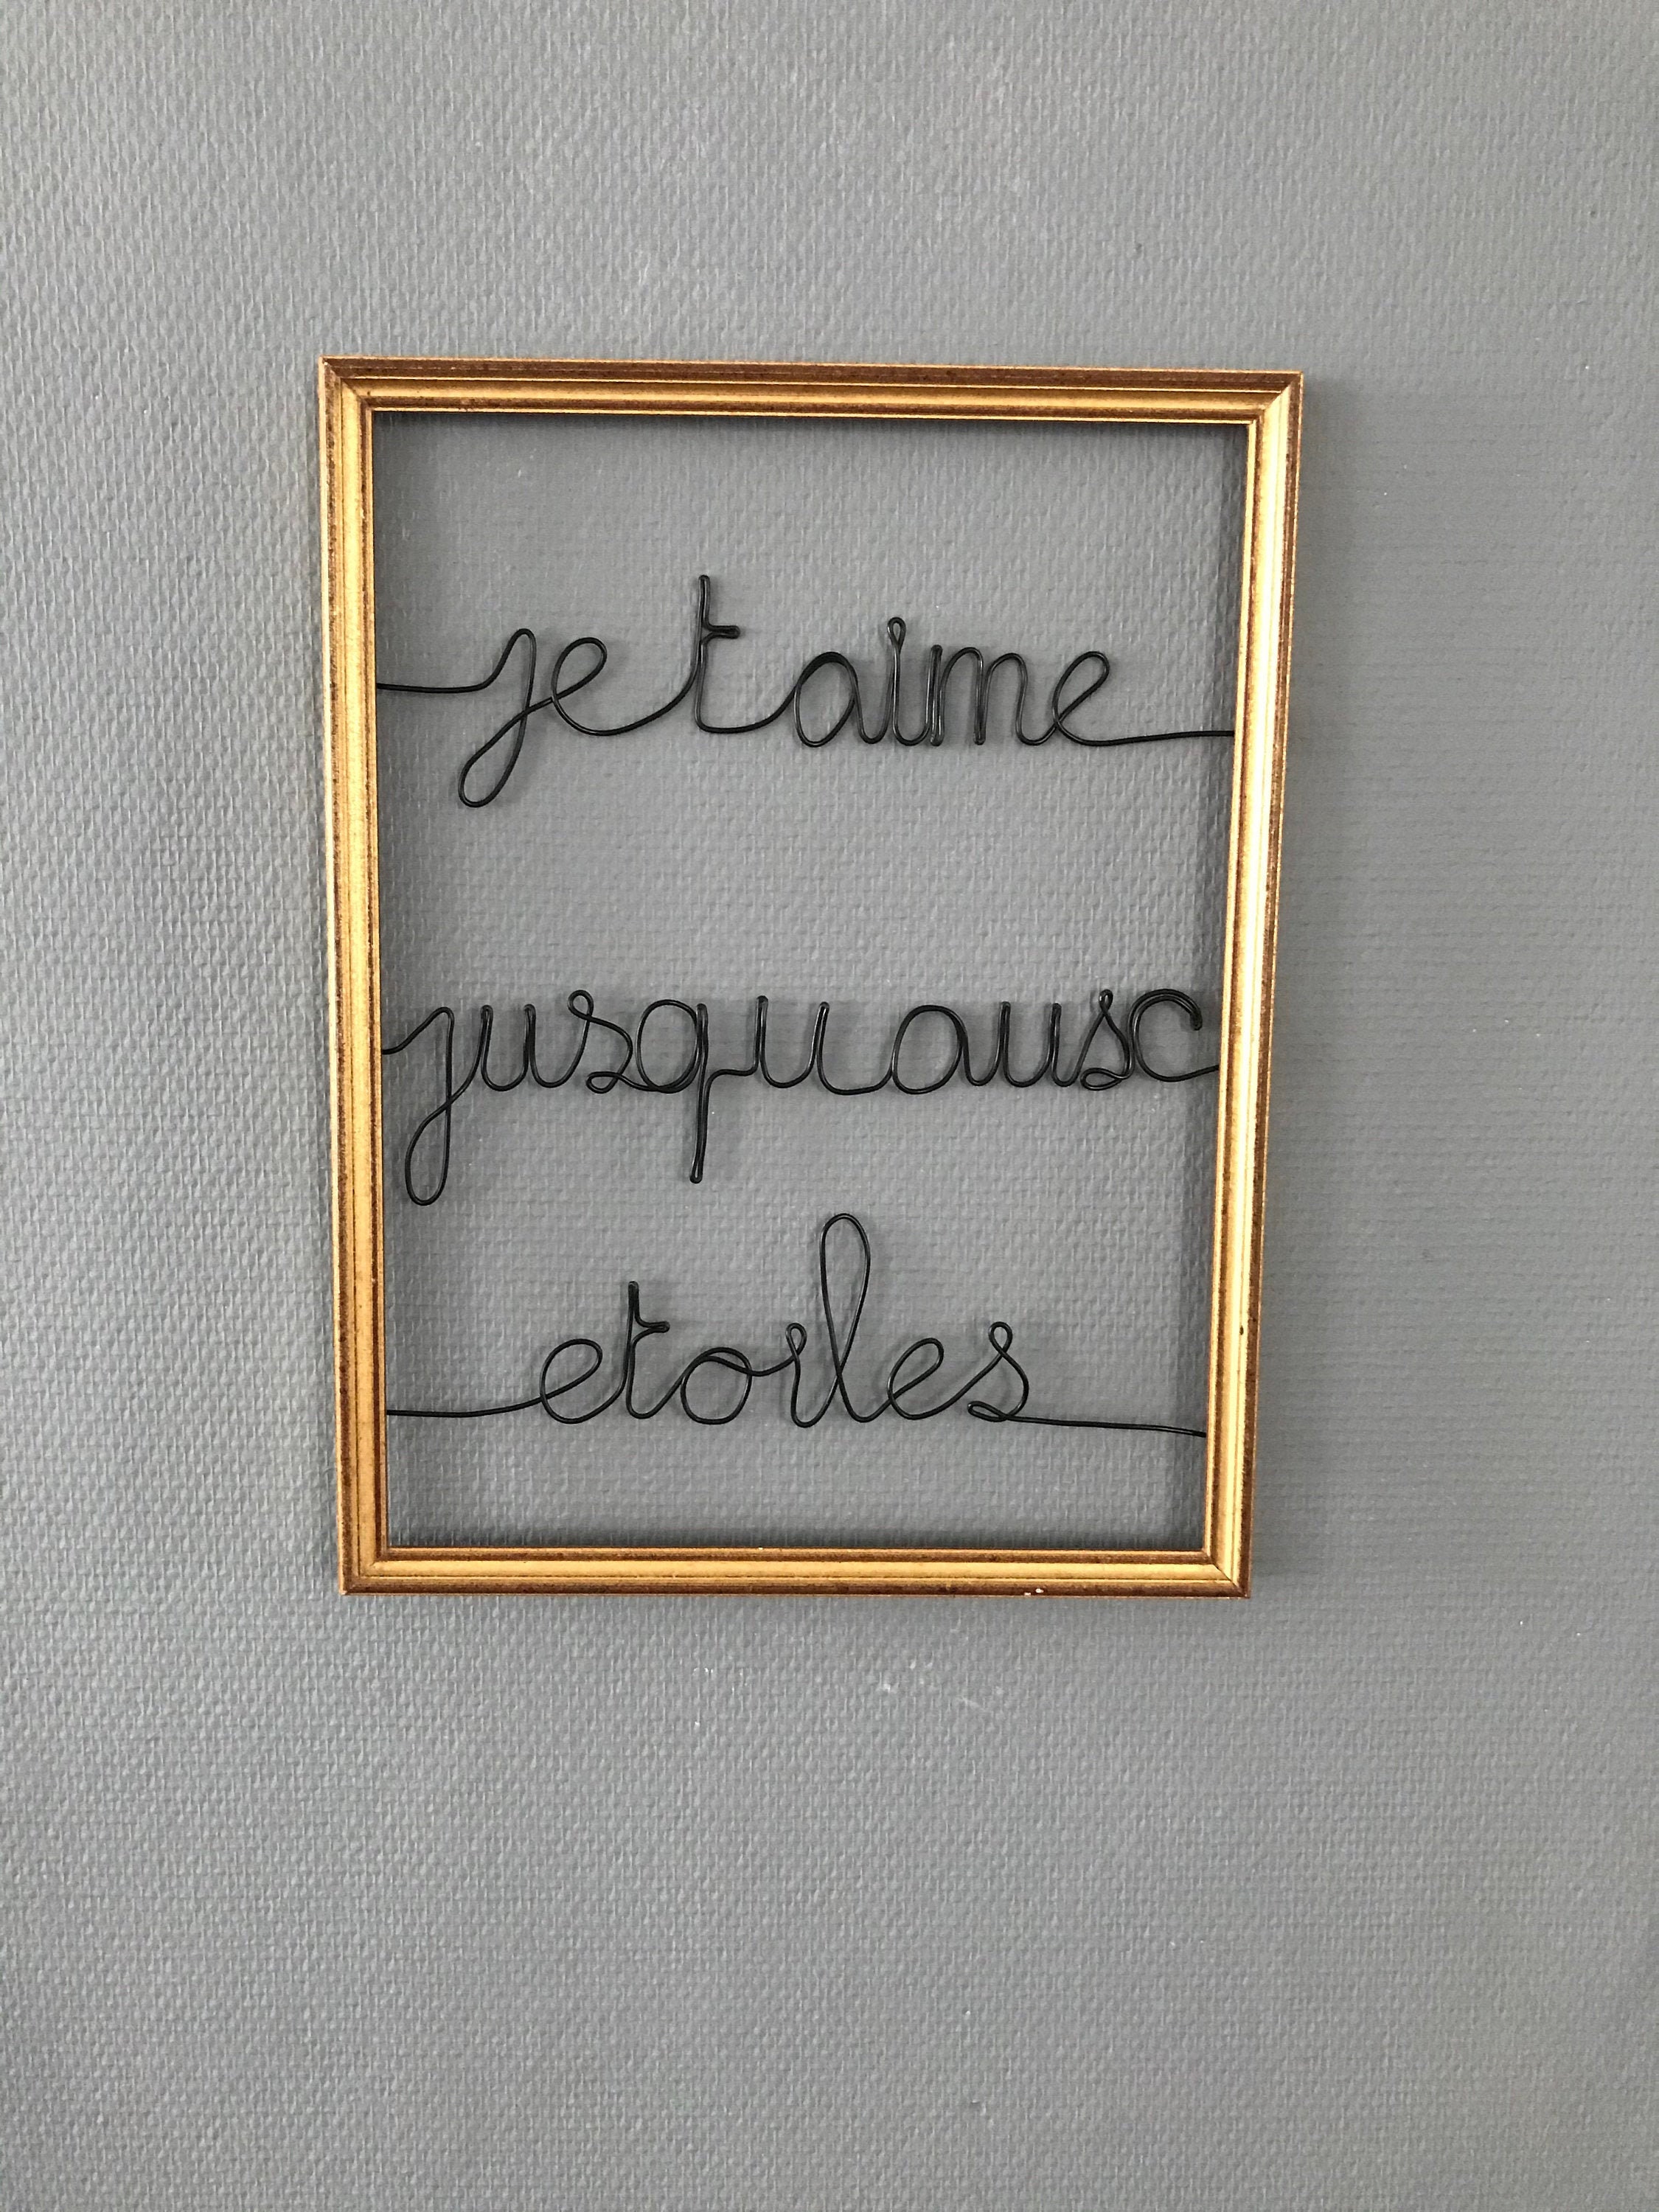 je t aime
jusquausc
etoiles